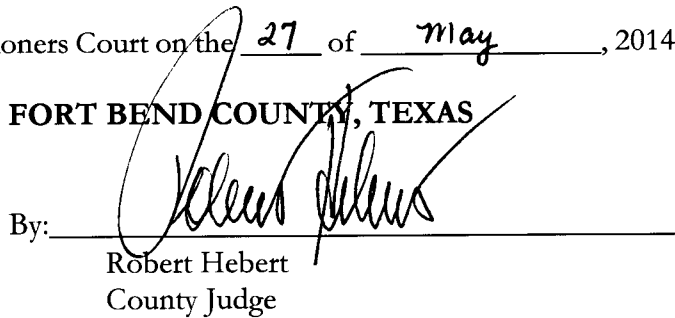 oners Court on the 27 of May, 2014
FORT BEND COUNTY, TEXAS
By: Robert Hebert
Robert Hebert
County Judge